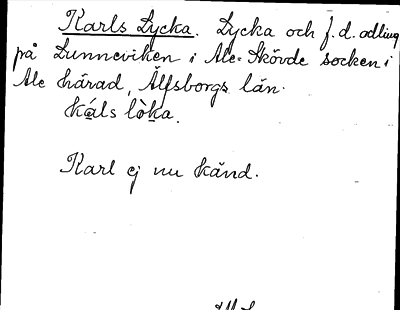 Karls Lycka. Lycka och f. d. odling
på Lunneviken i Ale-Skövde socken i
Ale härad, Älfsborgs län.
Káls lòka.
Karl ej nu känd.